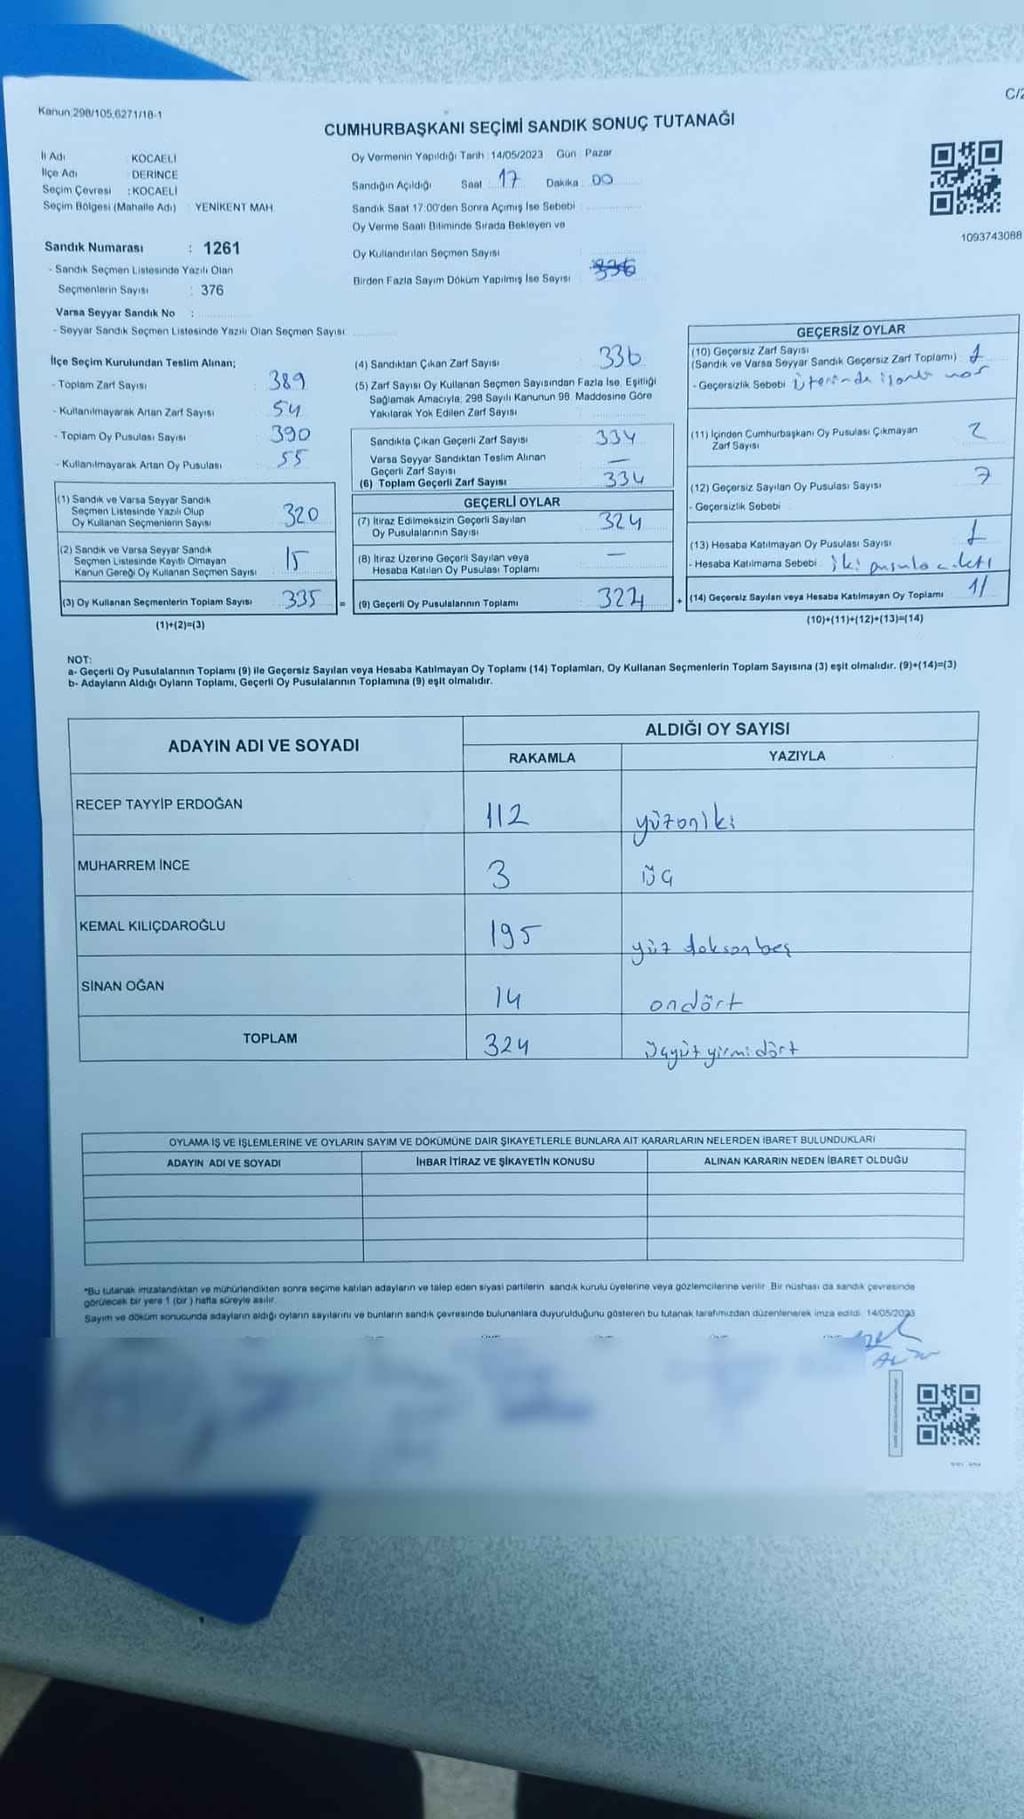 Kanun 298/105,6271/18-1
C/2
CUMHURBAŞKANI SEÇİMİ SANDIK SONUÇ TUTANAĞI
İl Adı : KOCAELİ
İlçe Adı : DERİNCE
Seçim Çevresi : KOCAELİ
Seçim Bölgesi (Mahalle Adı) : YENİKENT MAH.
Oy Vermenin Yapıldığı Tarih : 14/05/2023 Gün : Pazar
Sandığın Açıldığı Saat 17 Dakika 00
Sandık Saat 17:00'den Sonra Açmış İse Sebebi
Oy Verme Saati Bitiminde Sırada Bekleyen ve
Oy Kullandırılan Seçmen Sayısı
Birden Fazla Sayım Döküm Yapılmış İse Sayısı 336
1093743088
Sandık Numarası : 1261
- Sandık Seçmen Listesinde Yazılı Olan
Seçmenlerin Sayısı : 376
Varsa Seyyar Sandık No :
- Seyyar Sandık Seçmen Listesinde Yazılı Olan Seçmen Sayısı
İlçe Seçim Kurulundan Teslim Alınan;
- Toplam Zarf Sayısı 389
- Kullanılmayarak Artan Zarf Sayısı 54
- Toplam Oy Pusulası Sayısı 390
- Kullanılmayarak Artan Oy Pusulası 55
(1) Sandık ve Varsa Seyyar Sandık
Seçmen Listesinde Yazılı Olup
Oy Kullanan Seçmenlerin Sayısı 320
(2) Sandık ve Varsa Seyyar Sandık
Seçmen Listesinde Kayıtlı Olmayan
Kanun Gereği Oy Kullanan Seçmen Sayısı 15
(3) Oy Kullanan Seçmenlerin Toplam Sayısı 335 =
(1)+(2)=(3)
(4) Sandıktan Çıkan Zarf Sayısı 336
(5) Zarf Sayısı Oy Kullanan Seçmen Sayısından Fazla İse, Eşitliği
Sağlamak Amacıyla, 298 Sayılı Kanunun 98. Maddesine Göre
Yakılarak Yok Edilen Zarf Sayısı
Sandıkta Çıkan Geçerli Zarf Sayısı 334
Varsa Seyyar Sandıktan Teslim Alınan
Geçerli Zarf Sayısı —
(6) Toplam Geçerli Zarf Sayısı 334
GEÇERLİ OYLAR
(7) İtiraz Edilmeksizin Geçerli Sayılan
Oy Pusulalarının Sayısı 324
(8) İtiraz Üzerine Geçerli Sayılan veya
Hesaba Katılan Oy Pusulası Toplamı —
(9) Geçerli Oy Pusulalarının Toplamı 324 +
GEÇERSİZ OYLAR
(10) Geçersiz Zarf Sayısı
(Sandık ve Varsa Seyyar Sandık Geçersiz Zarf Toplamı) 1
- Geçersizlik Sebebi üzerinde işaret var
(11) İçinden Cumhurbaşkanı Oy Pusulası Çıkmayan
Zarf Sayısı 2
(12) Geçersiz Sayılan Oy Pusulası Sayısı 7
- Geçersizlik Sebebi
(13) Hesaba Katılmayan Oy Pusulası Sayısı 1
- Hesaba Katılmama Sebebi iki pusula çıktı
(14) Geçersiz Sayılan veya Hesaba Katılmayan Oy Toplamı 11
(10)+(11)+(12)+(13)=(14)
NOT:
a- Geçerli Oy Pusulalarının Toplamı (9) ile Geçersiz Sayılan veya Hesaba Katılmayan Oy Toplamı (14) Toplamları, Oy Kullanan Seçmenlerin Toplam Sayısına (3) eşit olmalıdır. (9)+(14)=(3)
b- Adayların Aldığı Oyların Toplamı, Geçerli Oy Pusulalarının Toplamına (9) eşit olmalıdır.
ADAYIN ADI VE SOYADI
ALDIĞI OY SAYISI
RAKAMLA YAZIYLA
RECEP TAYYİP ERDOĞAN 112 yüzoniki
MUHARREM İNCE 3 üç
KEMAL KILIÇDAROĞLU 195 yüz doksanbeş
SİNAN OĞAN 14 ondört
TOPLAM 324 üçyüzyirmidört
OYLAMA İŞ VE İŞLEMLERİNE VE OYLARIN SAYIM VE DÖKÜMÜNE DAİR ŞİKAYETLERLE BUNLARA AİT KARARLARIN NELERDEN İBARET BULUNDUKLARI
ADAYIN ADI VE SOYADI İHBAR İTİRAZ VE ŞİKAYETİN KONUSU ALINAN KARARIN NEDEN İBARET OLDUĞU
*Bu tutanak imzalandıktan ve mühürlendikten sonra seçime katılan adayların ve talep eden siyasi partilerin sandık kurulu üyelerine veya gözlemcilerine verilir. Bir nüshası da sandık çevresinde
görülecek bir yere 1 (bir) hafta süreyle asılır.
Sayım ve döküm sonucunda adayların aldığı oyların sayılarını ve bunların sandık çevresinde bulunanlara duyurulduğunu gösteren bu tutanak tarafımızdan düzenlenerek imza edildi. 14/05/2023